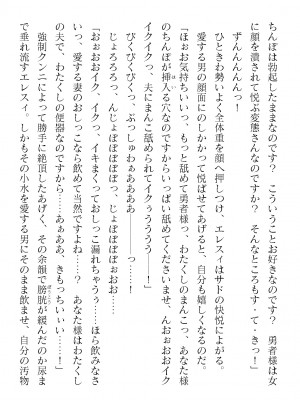 ちんぽは勃起したままなのです？　こういうことがお好き？　勇者様は女
に顔を潰されて悦ぶ変態さんなのですか？　そんなところもす・て・きっ！
ずんんんんっ！
ひときわ勢いよく全体重を顔へ押しつけ、エレスィはサドの快悦によがる。
愛する男の顔面にのしかかって悦ばせてあげると、自分も嬉しくなるのだ。
「ほぉお気持ちいいっ、もっと舐めて勇者様っ、わたくしのまんこっ、あなた
のちんぽが挿入る穴なのですからいっぱい舐めてくださいませ、んおぉおおイク
イクイクっ、夫にまんこ舐められてイクぅうううう――！」
びくびくびくっ、ぶっしゅわぁああああ――っ……！
「おぉおおイク、イクっ、イキまくっておしっこ漏れちゃうぅ……！」
じょろろっ、んじょぼぼぼぼっ、じょぼぼぼぼぉおお……
「んぉおおイク、イクっ、イキまくっておしっこ漏れちゃうぅ……ほら飲みなさ
いっ、愛する妻のおしっこなら飲めて当然ですよね……？　あなた様はわたくし
の夫で、わたくしの便器なのですから……あぁああ、きもっちいぃい……！」
強制クンニによって勝手に絶頂したあげく、その余韻で膀胱が緩んだのか尿ま
で垂れ流すエレスィ。しかもその小水を愛する男にそのまま飲ませ、自分の汚物